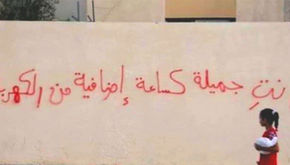 نتِ جميلة كساعة إضافية من الكهرب